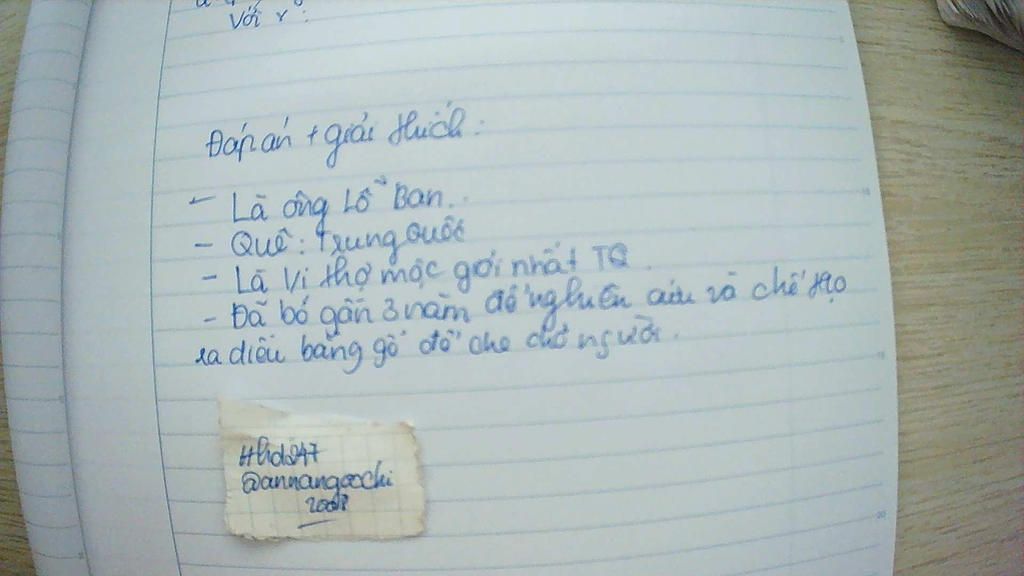 với r :
Đáp án + giải thích :
- Là ông Lỗ Ban.
- Quê : Trung Quốc
- Là vị thợ mộc giỏi nhất TQ.
- Đã bỏ gần 3 năm để nghiên cứu và chế tạo
ra diều bằng gỗ để che chở người.
#hd247
@annangocchi
2008